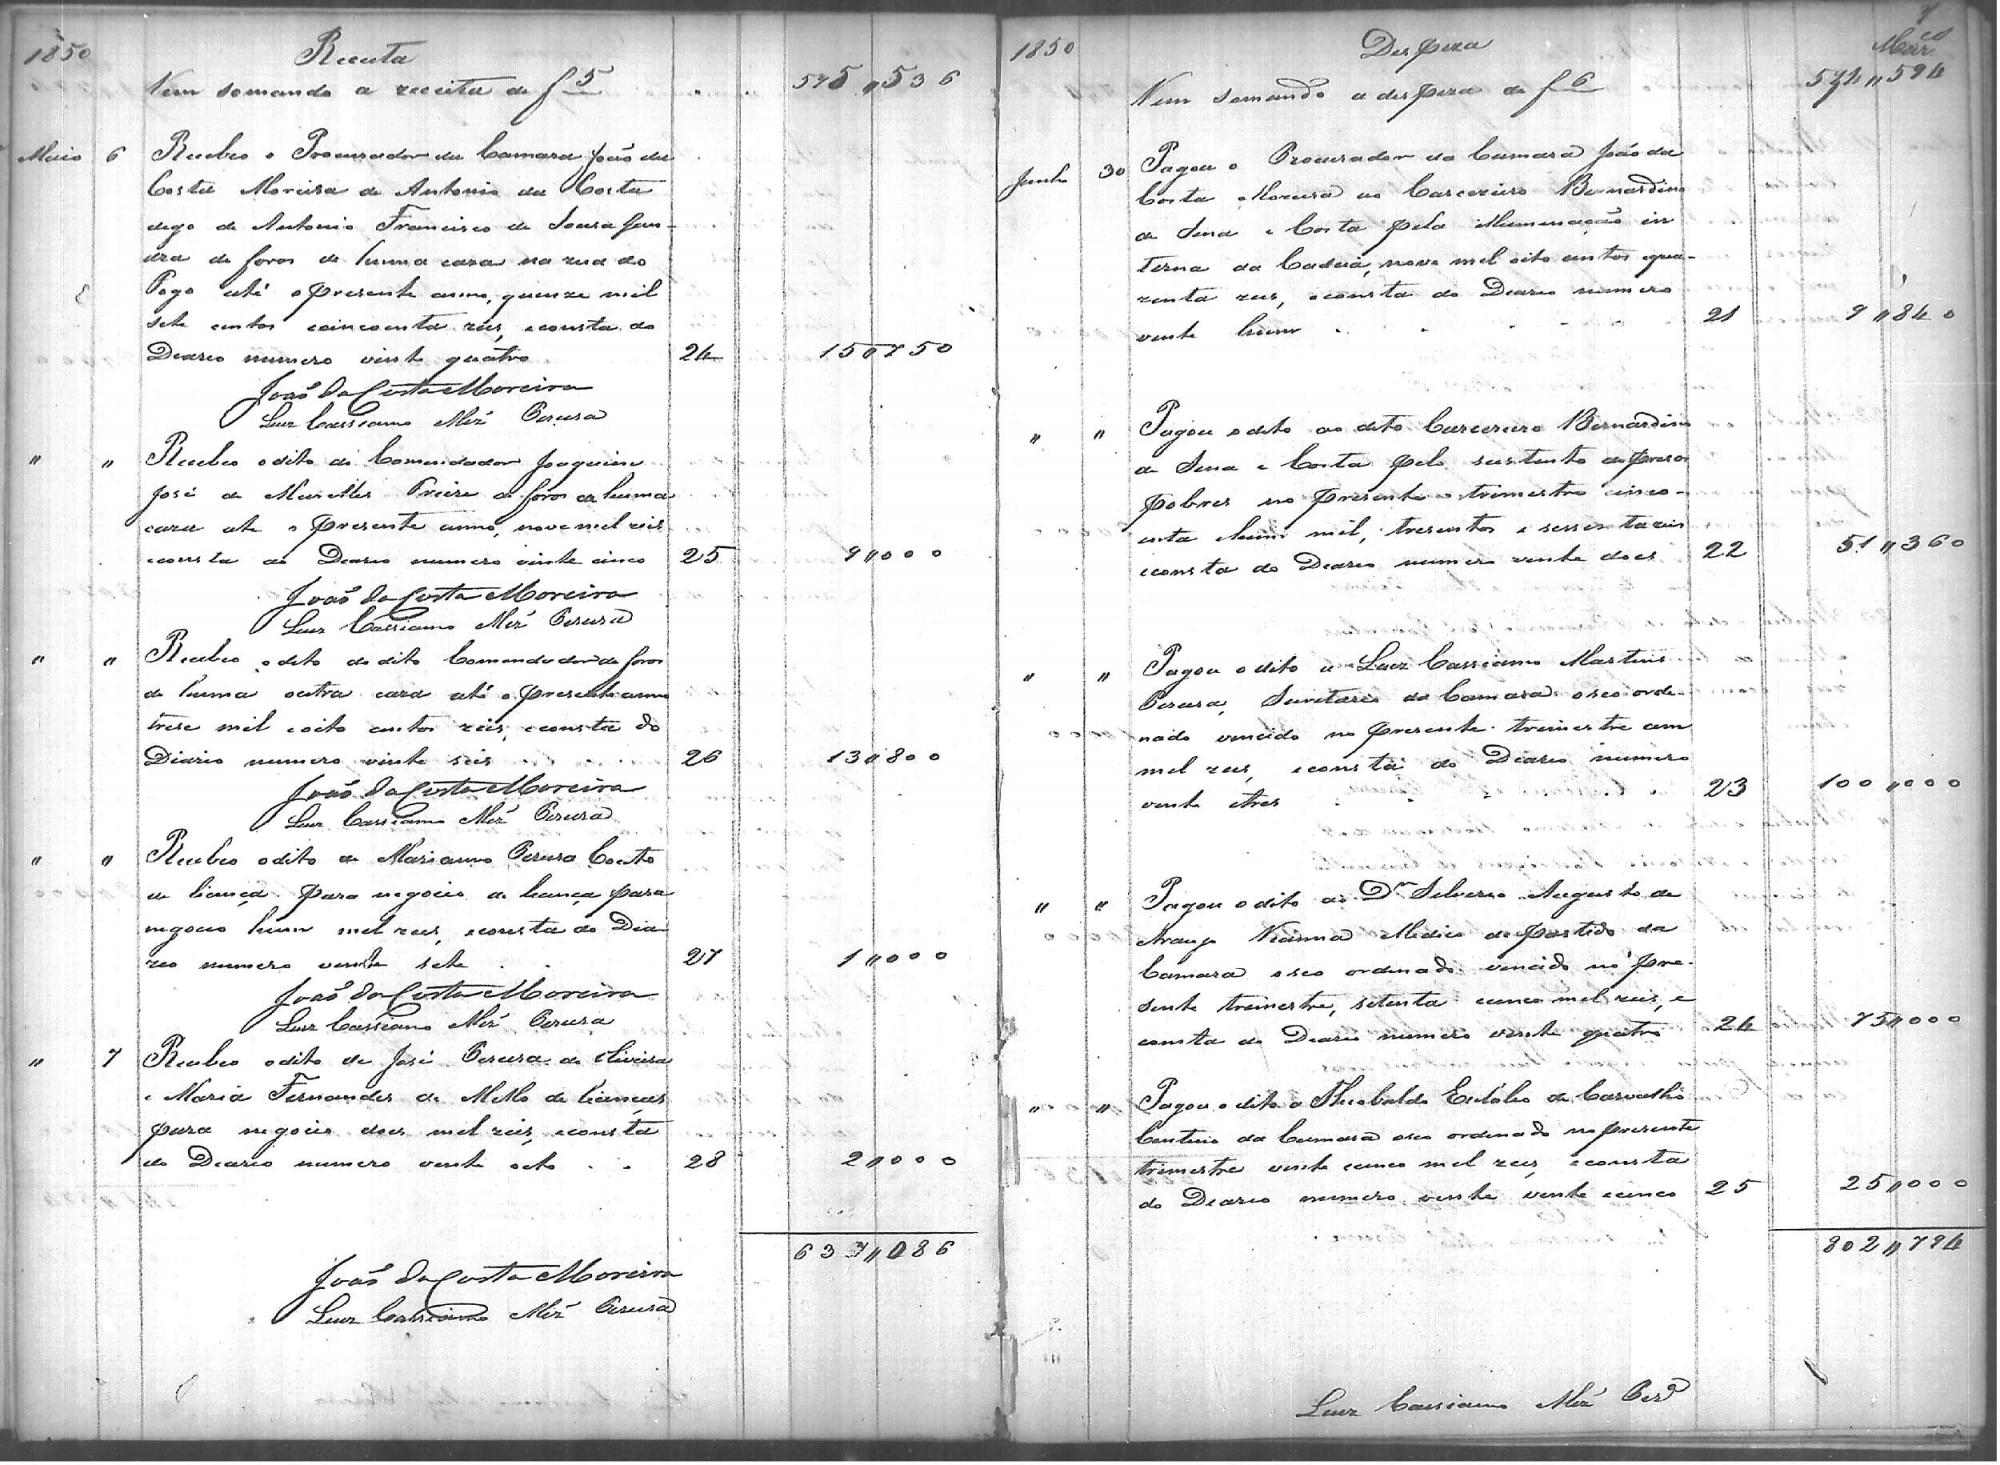 1850
Receita
Vem somando a receita de f 5 . . 575 " 536
Maio 6 Recebeo o Procurador da Camara João da
Costa Moreira de Antonio da Costa
digo de Antonio Francisco de Sousa Gan-
dra de foros de huma caza na rua do
Fogo até o presente anno, quenze mil
sete centos coincoenta reis, e consta do
Diareo numero vinte quatro 24 15 " 750
João da Costa Moreira
Luiz Cassiano Miz Pereira
" " Recebeo o dito do Comendador Joaquim
José de Meirelles Freire de foros de huma
caza até o presente anno, nove mil reis
e consta do Diareo numero vinte cinco 25 9 " 000
João da Costa Moreira
Luiz Cassiano Miz Pereira
" " Recebeo o dito do dito Comendador de foros
de huma outra caza até o presente anno
trese mil e oito centos reis, e consta do
Diario numero vinte seis 26 13 " 800
João da Costa Moreira
Luiz Cassiano Miz Pereira
" " Recebeo o dito de Marianno Pereira Couto
de licença para negocio de licença para
negocio hum mil reis, e consta do Dia
reo numero vinte sete . . 27 1 " 000
João da Costa Moreira
Luiz Cassiano Miz Pereira
" 7 Recebeo o dito de José Pereira de Oliveira
e Maria Fernandes de Mello de licenças
para negocio dois mil reis, e consta
do Diareo numero vinte oito . . 28 2 " 000
637 " 086
João da Costa Moreira
Luiz Cassiano Miz Pereira
7
1850
Despeza
Vem somando a despeza de f 6 " 594
Junho 30 Pagou o Procurador da Camara João da
Costa Moreira ao Carcereiro Bernardino
de Sena e Costa pela illumenação in
terna da Cadeia, nove mil oito centos qua-
renta reis, e consta do Diareo numero
vinte hum . . . . . . 21 9 " 840
" " Pagou o dito ao dito Carcereiro Bernardino
de Sena e Costa pelo sustento de presos
pobres no presente trimestre cinco-
enta hum mil, tresentos e sessenta reis
e consta do Diareo numero vinte dois 22 51 " 360
" " Pagou o dito a Luiz Cassiano Martins
Pereira, Secretario da Camara o seo orde-
nado vencido no presente trimestre cem
mil reis, e consta do Diareo numero
vinte e tres 23 100 " 000
" " Pagou o dito ao Dr Silverio Augusto de
Araujo Vianna Medico de partido da
Camara o seo ordenado vencido no pre-
sente trimestre, setenta cinco mil reis, e
consta do Diareo numero vinte quatro 24 75 " 000
" " Pagou o dito a Theobaldo Eulalio de Carvalho
Contino da Camara o seo ordenado no presente
trimestre vinte cinco mil reis, e consta
do Diareo numero vinte vinte cinco 25 25 " 000
802 " 794
Luiz Cassiano Miz Perª